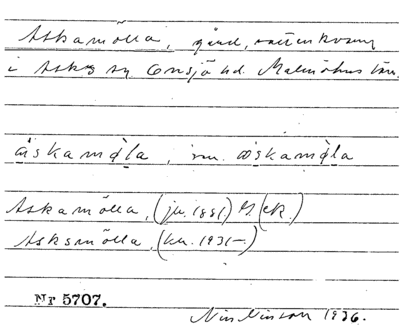 Askamölla, gård, vattenkvarn
i Asks sn Onsjö hd. Malmöhus län.
åskamǫ̀la, sm. æskamǫ̀la
Askamölla, (ju. 1881) (ek.)
Asksmölla, (ka. 1931–)
Nr 5707.
1936.